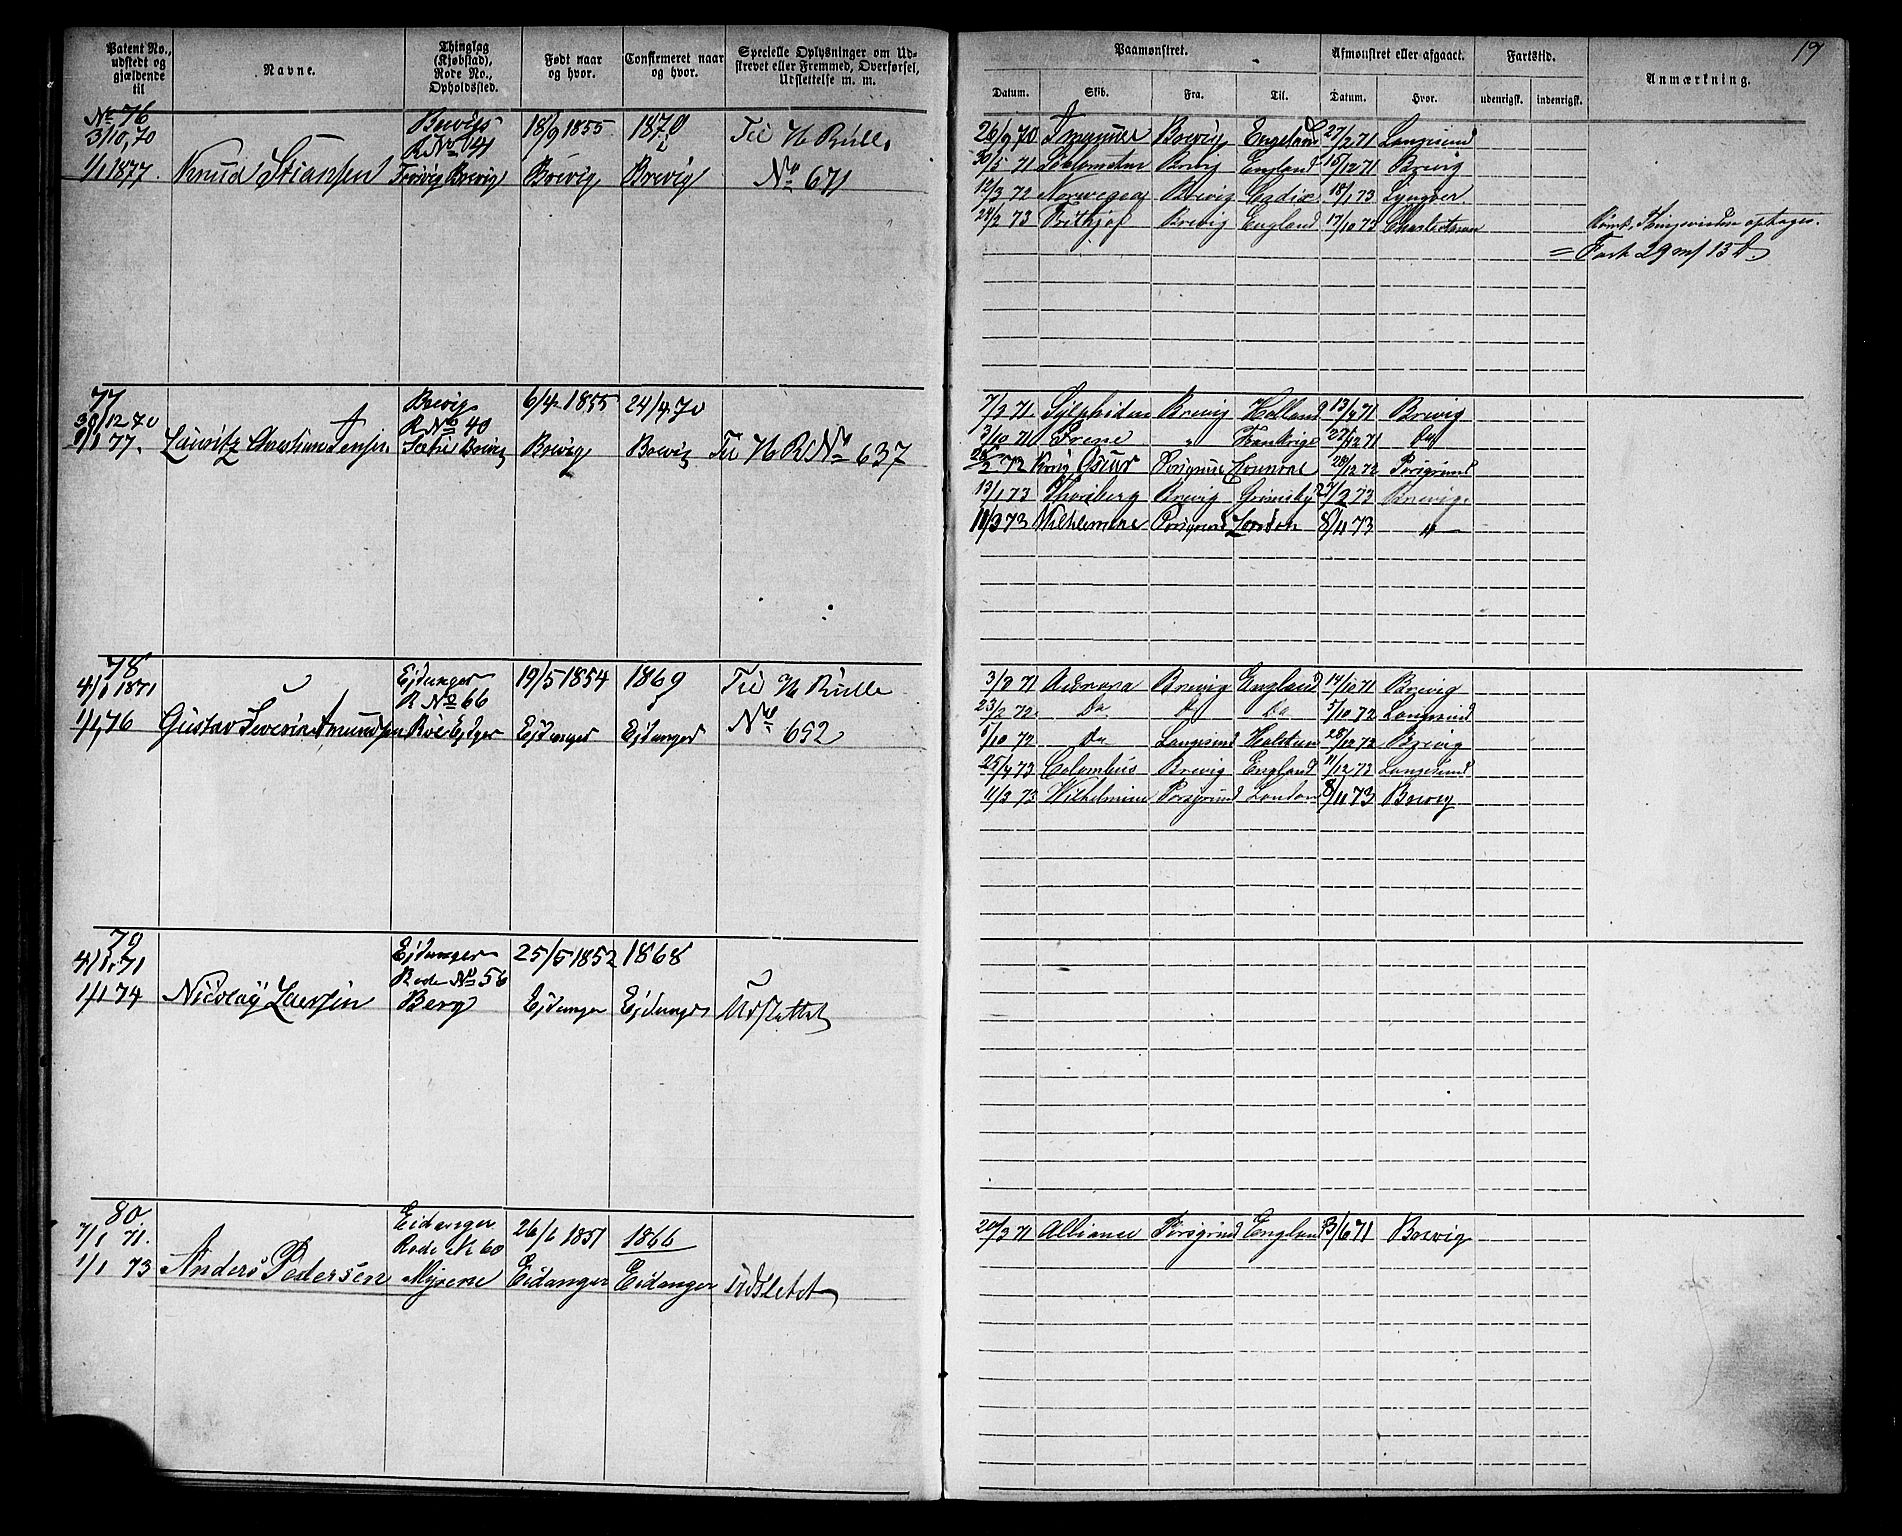 Patent No., udstedt og gjældende til
Navne.
Thinglag (Kjøbstad), Rode No., Opholdssted.
Født naar og hvor.
Confirmeret naar og hvor.
Specielle Oplysninger om Udskrevet eller Fremmed, Overførsel, Udslettelse m. m.
No 76
3/10 70
1/1 1877.
Knud Stiansen
Brevigs
R No 141
Brevig
18/9 1855.
Brevig
1870
Brevig
Til H Rulle
No 671
77
30/12 70
1/1 77.
Lauritz Christian Jensen
Brevig
R No 40
6/4 1855
Brevig
24/4 70
Brevig
Til H R No 637
78
4/1 1871
1/1 76
Gustav Severin Amundsen
Ejdanger
R No 66
19/5 1854
Ejdanger
1869
Ejdanger
Til H Rulle
No 652
79
4/1 71
1/1 74
Nicolay Larsen
Ejdanger
Rode No 56
Berg
25/5 1852
Ejdanger
1868
Ejdanger
Udslettet
80.
7/1 71.
1/1 73
Anders Pedersen
Eidanger
Rode No 60
Myrene
26/6 1851
Eidanger
1866
Eidanger
Udslettet
19
Paamønstret.
Afmønstret eller afgaaet.
Fartstid.
Anmærkning.
Datum.
Skib.
Fra.
Til.
Datum.
Hvor.
udenrigst.
indenrigst.
26/9 70 Brevig England 27/2 71 Langesund
30/5 71 Brevig England 15/12 71 Brevig
12/3 72 Norwegen Brevig Cadix 18/1 73 Lyngør
24/2 73 Frithjof Brevig England 17/10 73
Rømt,
= Fart 29 m/ 13 d.
7/3 71 Sylphiden Brevig Holland 13/9 71 Brevig
3/10 71 Irene " Frankrige 27/12 71 Do
2 72 Brig Oscar Porsgrund 28/12 72 Porsgrund
13/1 73 Thorberg Brevig Grimsby 27/2 73 Brevig
11/3 73 Wilhelmine Porsgrund London 8/11 73 "
3/9 71 Aurora Brevig England 14/10 71 Brevig
23/2 72 Do Do Do 5/10 72 Langesund
/10 72 Do Langesund 28/12 72 Brevig
25/4 73 Columbus Brevig England 11/12 73 Langesund
11/3 73 Wilhelmine Porsgrund London 8/11 73 Brevig
20/3 71 Alliance Porsgrund England 3/6 71 Brevig